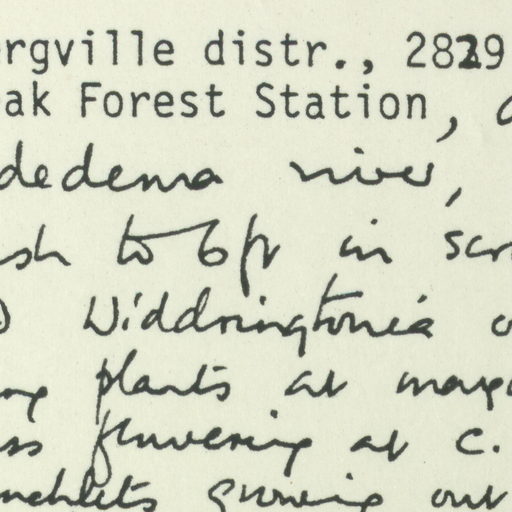 ergville distr., 2829
eak Forest Station,
dedema river,
sh to 6 ft in scr
Widdringtonia
plants at marg
ss flowering at c.
nchlets growing out